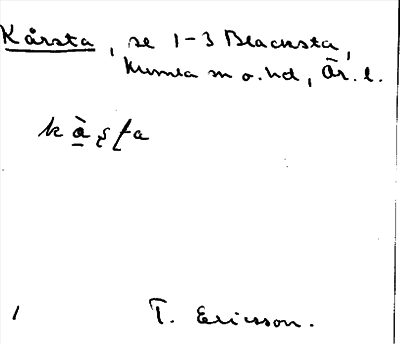 Kårsta, se 1-3 Blacksta,
Kumla sn o. hd, Ör. l.
kàʂʈa
/
T. Ericsson.